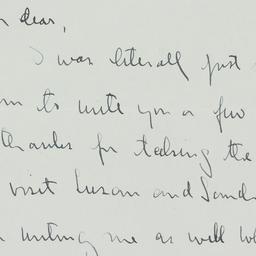 dear,
I was literall just
to write you a few
thanks for telling the
visit Susan and Sand
writing me as well wh